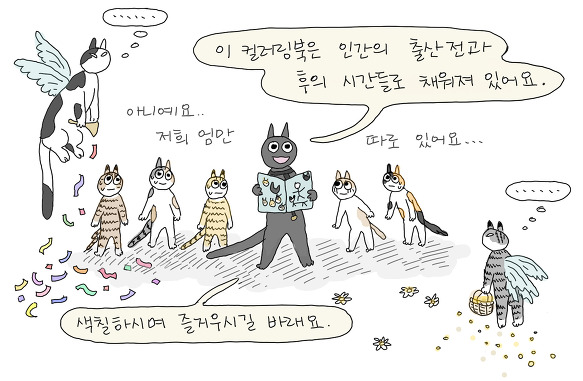 ......
이 컬러링북은 인간의 출산전과
후의 시간들로 채워져 있어요.
아니예요..
저희 엄만
따로 있어요...
.....
색칠하시며 즐거우시길 바래요.